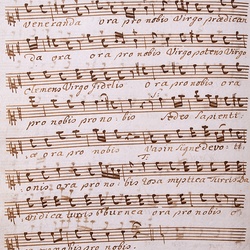 Veneranda ora pro nobis Virgo prædica
da ora ora pro nobis Virgo potens Virgo
Clemens Virgo fidelis ora pro nobis ora
pro nobis pro no: bis Sedes Sapienti:
æ ora pro nobis Vas insigne devoti:
onis ora pro no: bis rosa mystica Turris Da
vidica turris eburnea ora pro nobis
pro nobis.